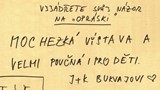 VYJÁDŘETE SVŮJ NÁZOR
NA „OPRÁSKI“
MOC HEZKÁ VÝSTAVA A
VELMI POUČNÁ I PRO DĚTI.
J+K BUKVAJOVI